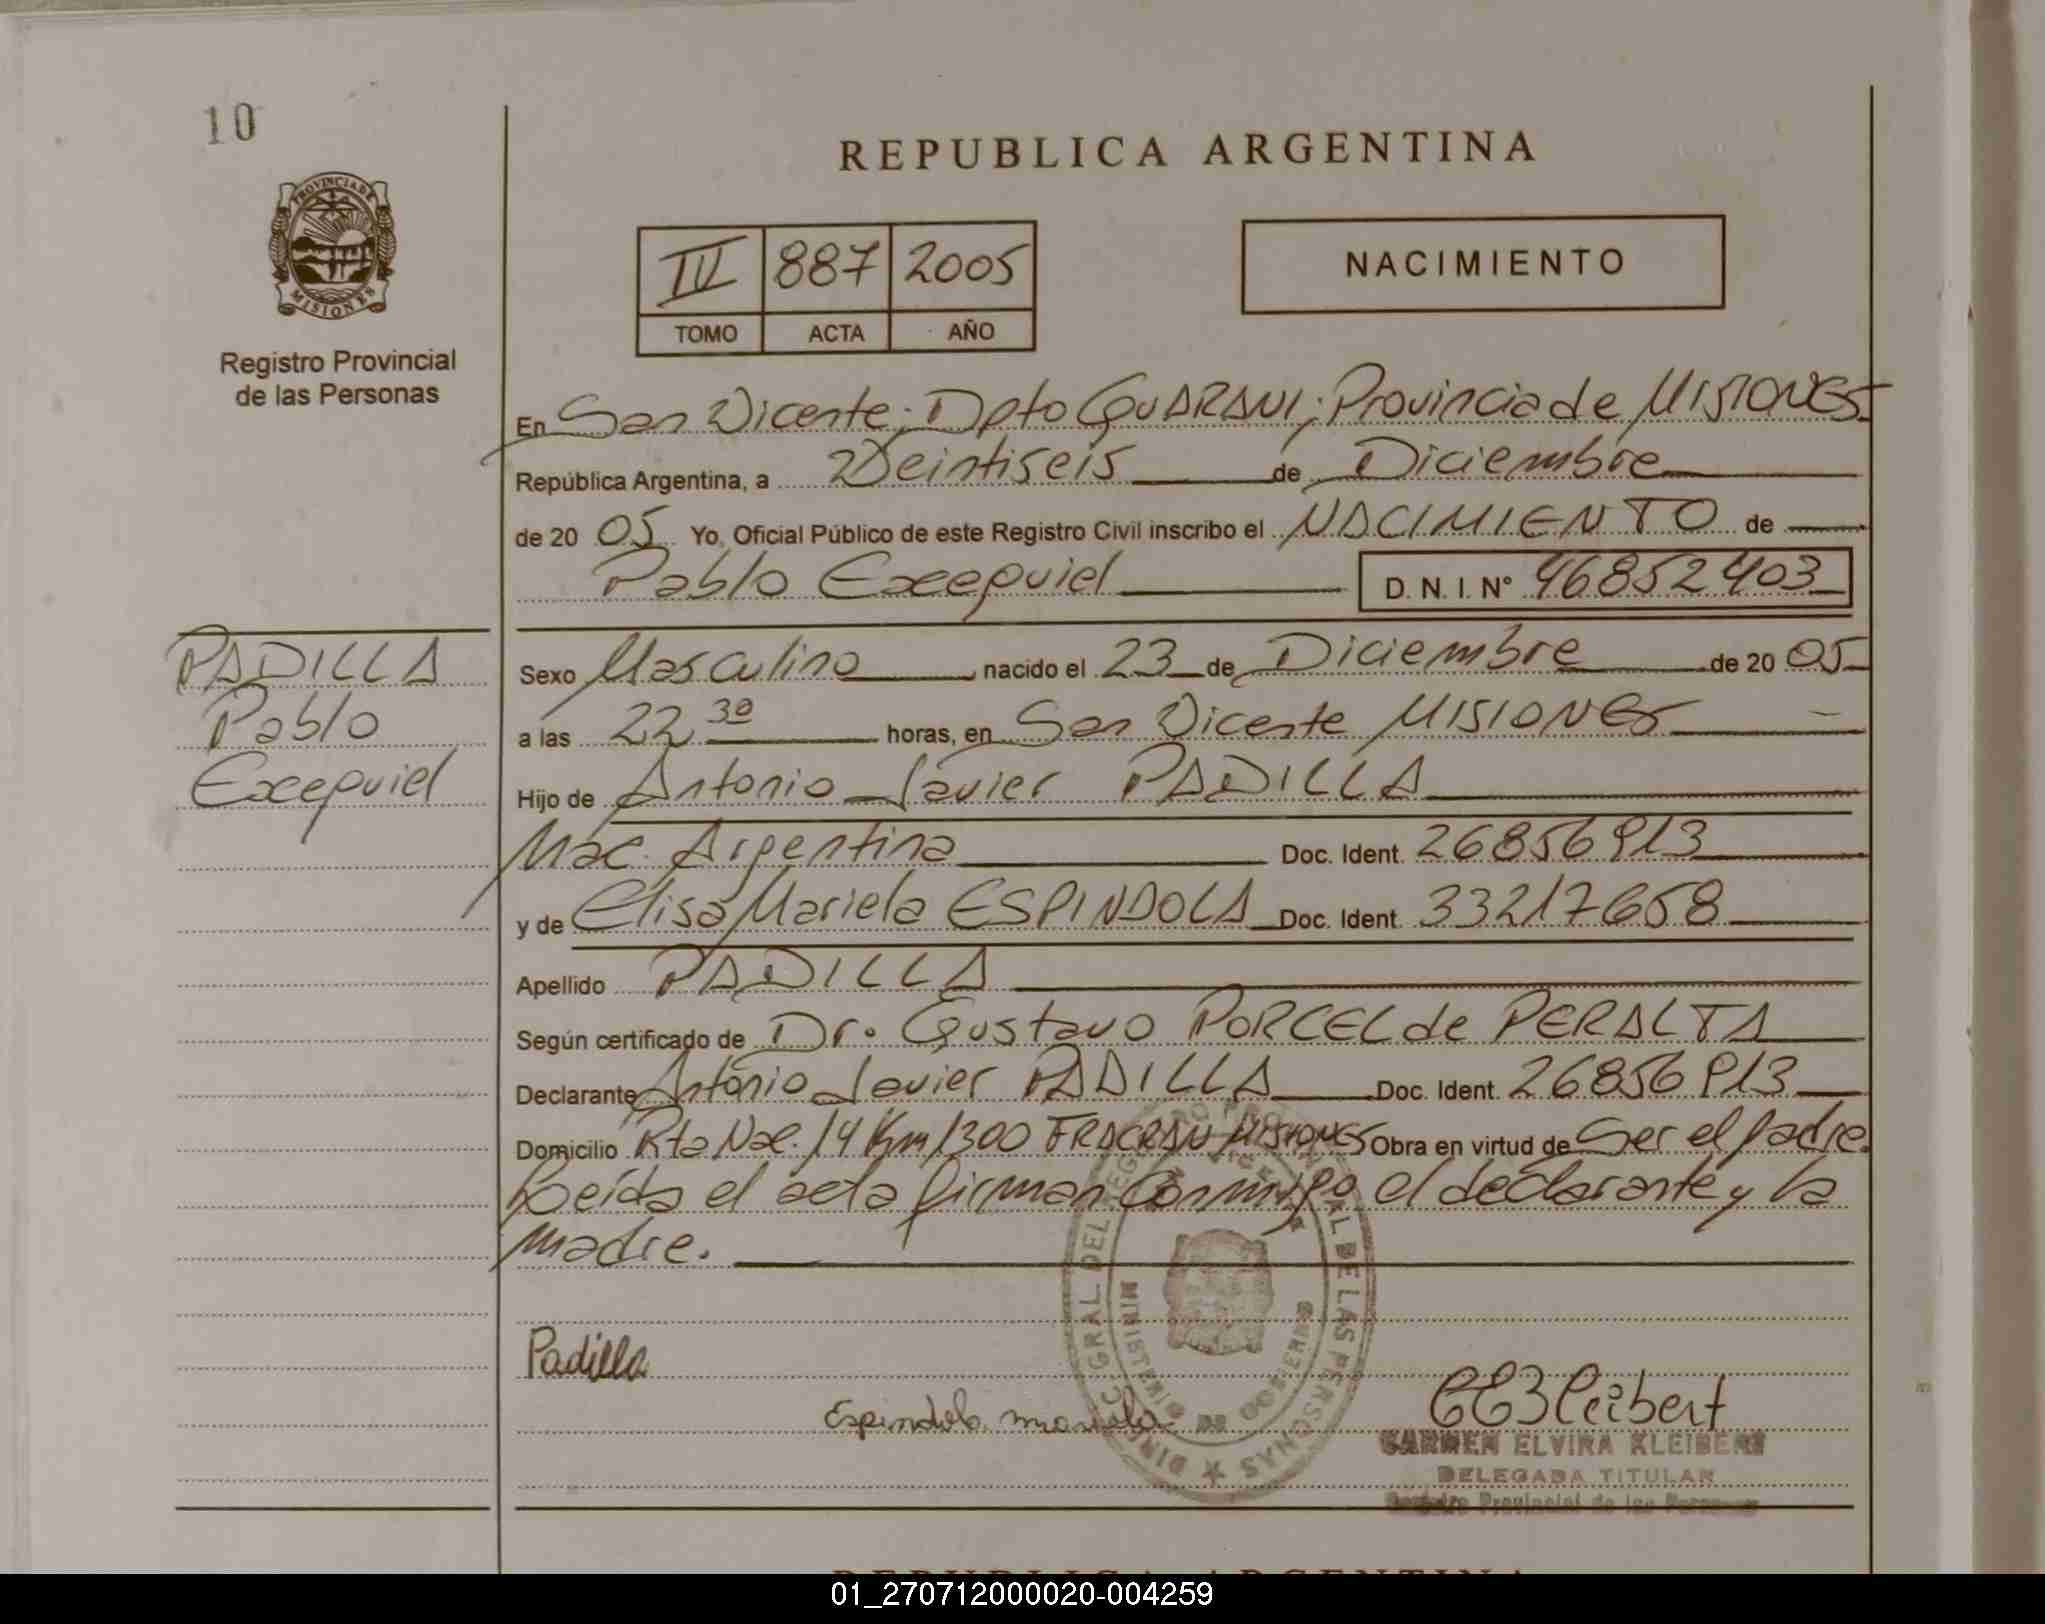 10
REPUBLICA ARGENTINA
PROVINCIA DE
MISIONES
Registro Provincial
de las Personas
IV 887 2005
TOMO ACTA AÑO
NACIMIENTO
En San Vicente; Dpto GUARANI; Provincia de MISIONES
República Argentina, a Veintiseis de Diciembre
de 20 05 Yo, Oficial Público de este Registro Civil inscribo el NACIMIENTO de
Pablo Exequiel D. N. I. N° 46852403
PADILLA
Pablo
Exequiel
Sexo Masculino nacido el 23 de Diciembre de 20 05
a las 22 30 horas, en San Vicente MISIONES
Hijo de Antonio Javier PADILLA
Nac. Argentina Doc. Ident. 26856913
y de Elisa Mariela ESPINDOLA Doc. Ident. 33217658
Apellido PADILLA
Según certificado de Dr. Gustavo PORCEL de PERALTA
Declarante Antonio Javier PADILLA Doc. Ident. 26856913
Domicilio Rta Nac. 14 Km 1300 FRACRAN MISIONES Obra en virtud de Ser el padre.
Leída el acta firman conmigo el declarante y la
madre.
DIREC. GRAL. DEL REGISTRO PROVINCIAL DE LAS PERSONAS
MINISTERIO DE GOBIERNO
Padilla
Espindola mariela
CEKleibert
CARMEN ELVIRA KLEIBERT
DELEGADA TITULAR
Registro Provincial de las Personas
REPUBLICA ARGENTINA
01_270712000020-004259